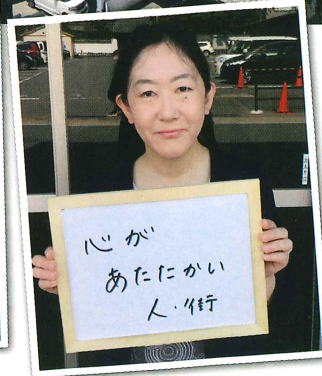 心が
あたたかい
人・街